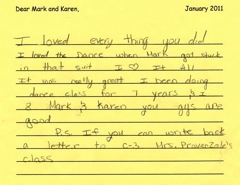 Dear Mark and Karen, January 2011
I loved every thing you did
I loved the Dance when Mark got stuck
in that suit I ♡ It All
It was really great I been doing
dance class for 7 years & I
& Mark & Karen you ggs are
good
P.s If you can write back
a letter to c-3 Mrs. Provenzale's
class